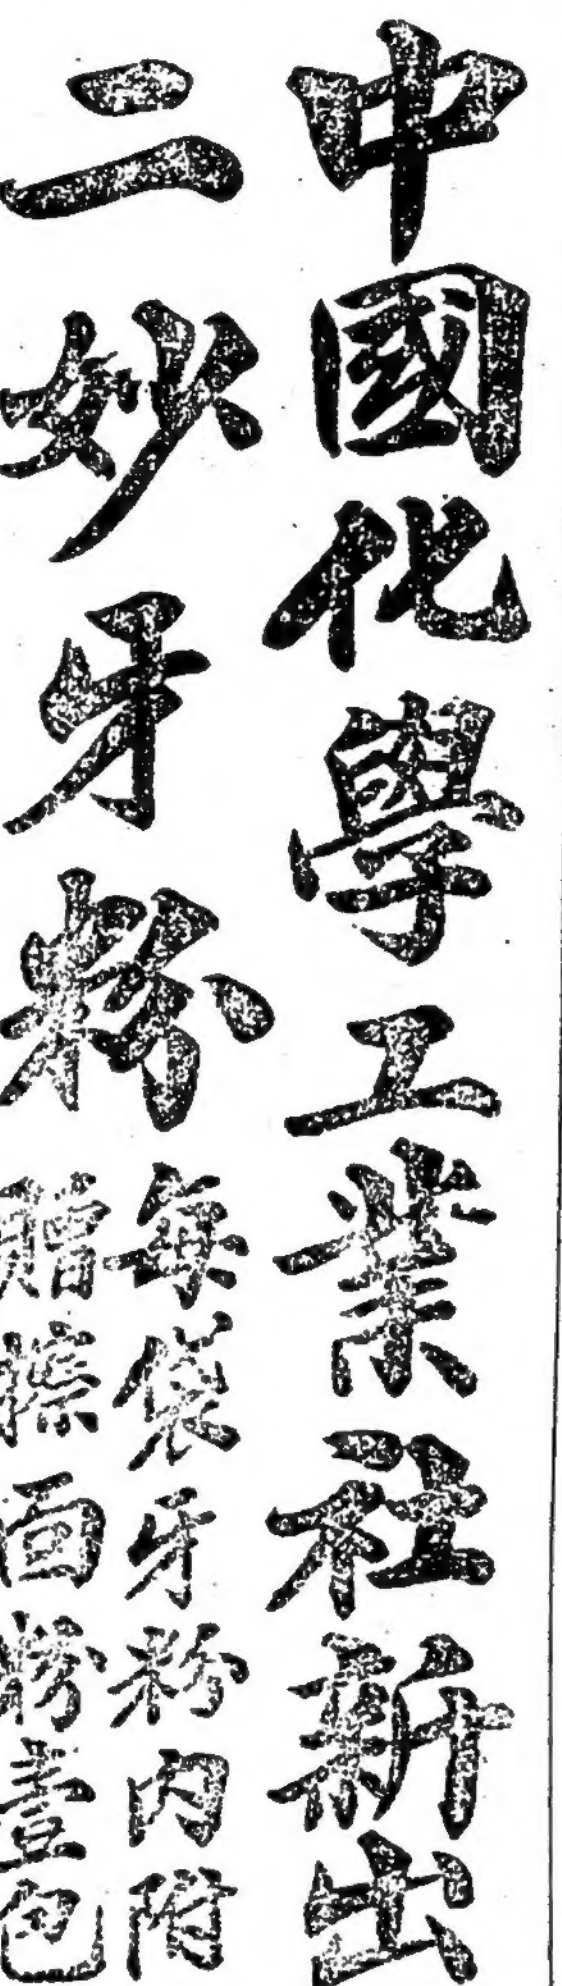 中國化學工業社新出
二妙牙粉
每袋牙粉內附
贈擦面粉壹包